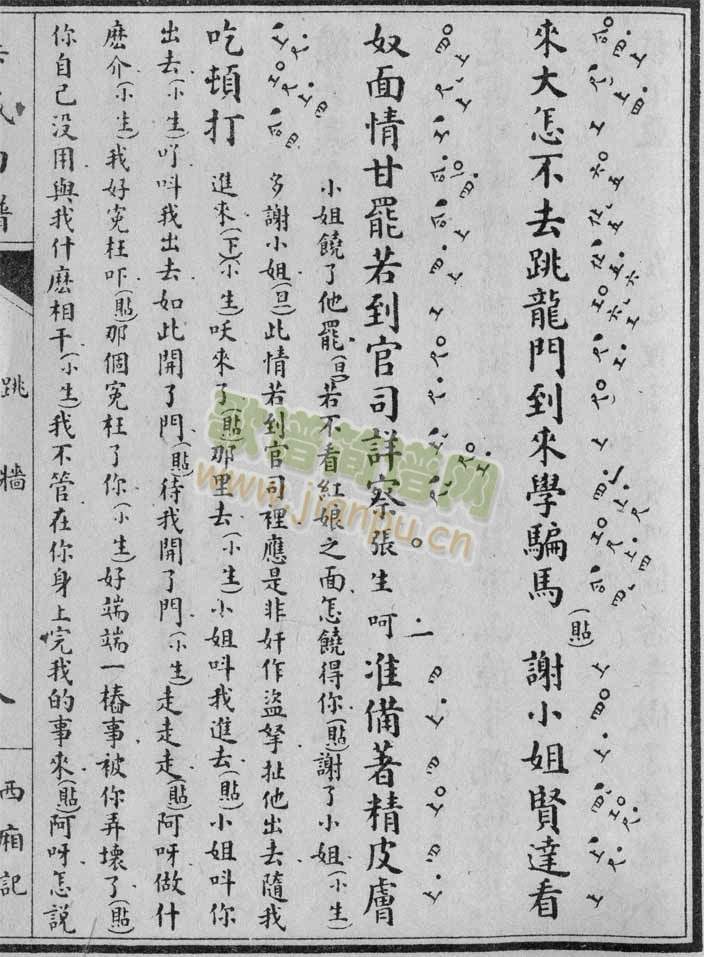 來大怎不去跳龍門到來學騙馬(貼)謝小姐賢達看
奴面情甘罷若到官司詳察張生呵准備著精皮膚
小姐饒了他罷(旦)若不看紅娘之面怎饒得你(貼)謝了小姐(小生)
多謝小姐(旦)此情若到官司裡應是非奸作盜拏扯他出去隨我
吃頓打 進來(下)(小生)呀來了(貼)那里去(小生)小姐叫我進去(貼)小姐叫你
出去(小生)吓叫我出去如此開了門(貼)待我開了門(小生)走走走(貼)阿呀做什
麽介(小生)我好冤枉吓(貼)那個冤枉了你(小生)好端端一樁事被你弄壞了(貼)
你自己没用與我什麽相干(小生)我不管在你身上完我的事來(貼)阿呀怎説
跳牆
西廂記
歌谱简谱网
www.jianpu.cn